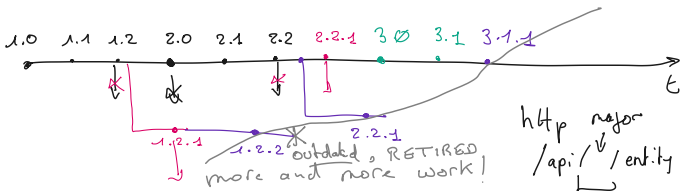 1.0 1.1 1.2 2.0 2.1 2.2 2.2.1 3.0 3.1 3.1.1
t
1.2.1 1.2.2 2.2.1
outdated, RETIRED
more and more work!
http major
/api/ /entity